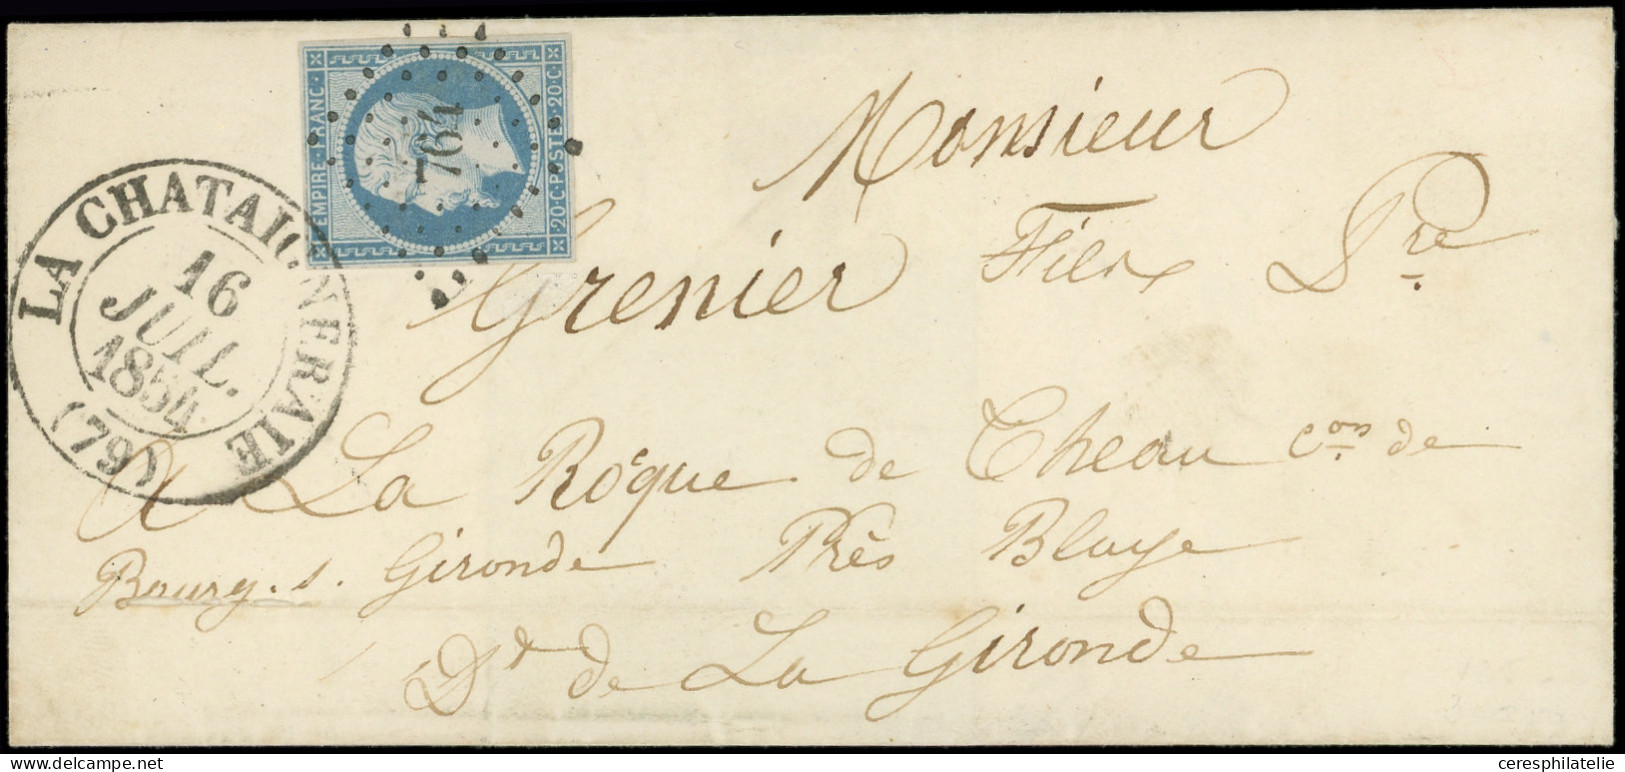 EMPIRE · FRANC ·
20 · C · POSTES · 20 · C
764
LA CHATAIGNERAIE
16
JUIL.
1854
(79)
Monsieur
Grenier Fils Pre
A La Roque de Theau con de
Bourg. s. Gironde Près Blaye
Dt de La Gironde
delcampe.net
ceresphilatelie